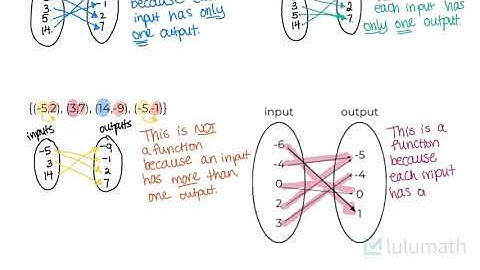 because each
input has only
one output.
3
5
14
1
2
7
3
5
14
2
7
each input has
only one output.
{(-5,2), (3,7), (14,-9), (-5,-1)}
inputs
outputs
-5
3
14
-9
-1
2
7
This is NOT
a function
because an input
has more than
one output.
input
output
-6
-4
0
2
3
-5
-4
0
1
This is a
function
because
each input
has a
lulumath